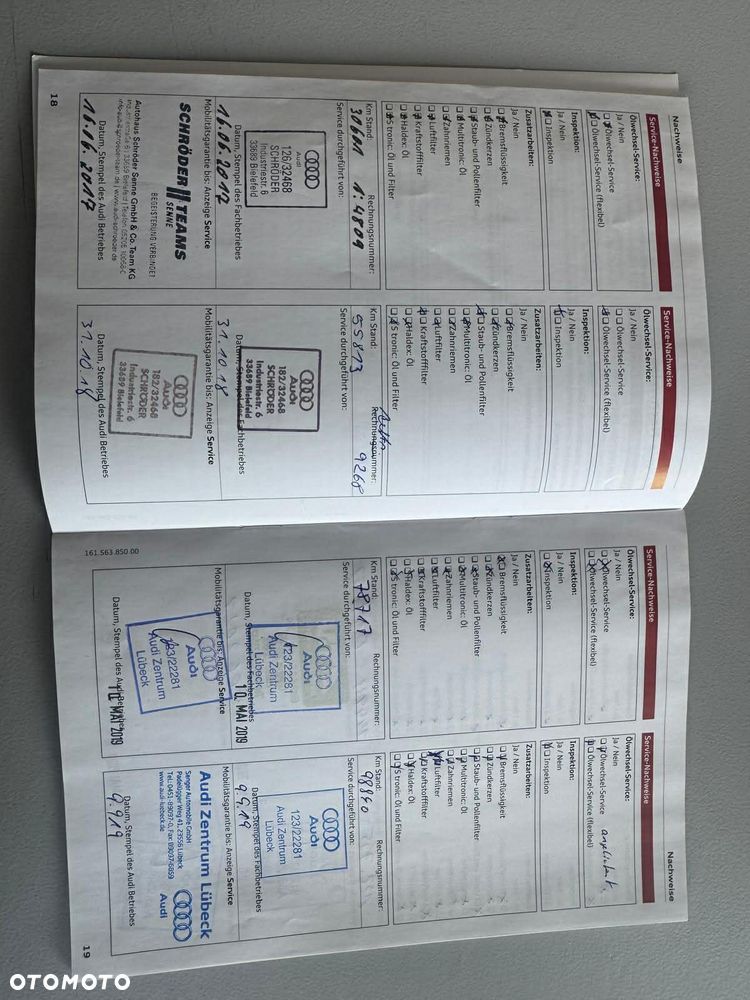 Nachweise
Service-Nachweise
Ölwechsel-Service:
Ja / Nein
Ölwechsel-Service
Ölwechsel-Service (flexibel)
Inspektion:
Ja / Nein
Inspektion
Zusatzarbeiten:
Ja / Nein
Bremsflüssigkeit
Zündkerzen
Staub- und Pollenfilter
Multitronic: Öl
Zahnriemen
Luftfilter
Kraftstofffilter
Haldex: Öl
S tronic: Öl und Filter
Km Stand: Rechnungsnummer:
30601 1:4809
Service durchgeführt von:
Audi
126/32468
SCHRÖDER
Industriestr. 6
33689 Bielefeld
16.06.2017
Datum, Stempel des Fachbetriebes
Mobilitätsgarantie bis: Anzeige Service
SCHRÖDER TEAMS
SENNE
BEGEISTERUNG VERBINDET
Autohaus Schröder Senne GmbH & Co. Team KG
16.06.2017
Datum, Stempel des Audi Betriebes
18
Service-Nachweise
Ölwechsel-Service:
Ja / Nein
Ölwechsel-Service
Ölwechsel-Service (flexibel)
Inspektion:
Ja / Nein
Inspektion
Zusatzarbeiten:
Ja / Nein
Bremsflüssigkeit
Zündkerzen
Staub- und Pollenfilter
Multitronic: Öl
Zahnriemen
Luftfilter
Kraftstofffilter
Haldex: Öl
S tronic: Öl und Filter
Km Stand: Rechnungsnummer:
55813 9268
Service durchgeführt von:
Audi
182/32468
SCHRÖDER
Industriestr. 6
33689 Bielefeld
31.10.18
Datum, Stempel des Fachbetriebes
Mobilitätsgarantie bis: Anzeige Service
Audi
182/32468
SCHRÖDER
Industriestr. 6
33689 Bielefeld
31.10.18
Datum, Stempel des Audi Betriebes
161.563.850.00
Service-Nachweise
Ölwechsel-Service:
Ja / Nein
Ölwechsel-Service
Ölwechsel-Service (flexibel)
Inspektion:
Ja / Nein
Inspektion
Zusatzarbeiten:
Ja / Nein
Bremsflüssigkeit
Zündkerzen
Staub- und Pollenfilter
Multitronic: Öl
Zahnriemen
Luftfilter
Kraftstofffilter
Haldex: Öl
S tronic: Öl und Filter
Km Stand: Rechnungsnummer:
78717
Service durchgeführt von:
Audi
123/22281
Audi Zentrum
Lübeck
10. MAI 2019
Datum, Stempel des Fachbetriebes
Mobilitätsgarantie bis: Anzeige Service
Audi
123/22281
Audi Zentrum
Lübeck
10. MAI 2019
Datum, Stempel des Audi Betriebes
Nachweise
Service-Nachweise
Ölwechsel-Service:
Ja / Nein
Ölwechsel-Service
Ölwechsel-Service (flexibel)
Inspektion:
Ja / Nein
Inspektion
Zusatzarbeiten:
Ja / Nein
Bremsflüssigkeit
Zündkerzen
Staub- und Pollenfilter
Multitronic: Öl
Zahnriemen
Luftfilter
Kraftstofffilter
Haldex: Öl
S tronic: Öl und Filter
Km Stand: Rechnungsnummer:
Service durchgeführt von:
Audi
123/22281
Audi Zentrum
Lübeck
9.9.19
Datum, Stempel des Fachbetriebes
Mobilitätsgarantie bis: Anzeige Service
Audi Zentrum Lübeck
Audi
www.audi-luebeck.de
9.9.19
Datum, Stempel des Audi Betriebes
19
OTOMOTO